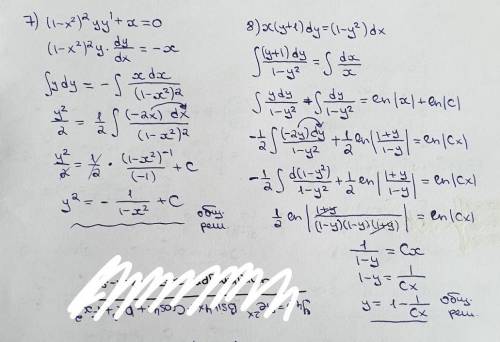 7) (1-x²)² yy' + x = 0
(1-x²)² y · dy/dx = -x
∫ y dy = - ∫ x dx/(1-x²)²
y²/2 = 1/2 ∫ (-2x) dx/(1-x²)²
y²/2 = 1/2 · (1-x²)⁻¹/(-1) + C
y² = - 1/(1-x²) + C
общ. реш.
8) x(y+1) dy = (1-y²) dx
∫ (y+1) dy/(1-y²) = ∫ dx/x
∫ y dy/(1-y²) + ∫ dy/(1-y²) = ln|x| + ln|C|
-1/2 ∫ (-2y) dy/(1-y²) + 1/2 ln|(1+y)/(1-y)| = ln|Cx|
-1/2 ∫ d(1-y²)/(1-y²) + 1/2 ln|(1+y)/(1-y)| = ln|Cx|
1/2 ln|(1+y)/((1-y)(1-y)(1+y))| = ln|Cx|
1/(1-y) = Cx
1-y = 1/(Cx)
y = 1 - 1/(Cx) общ. реш.